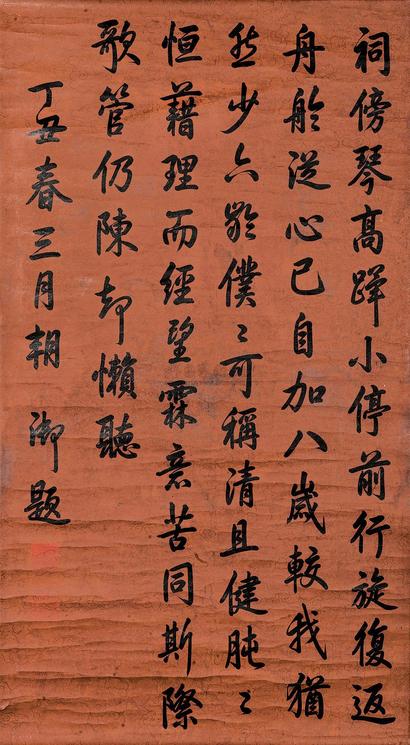 祠傍琴高蹕小停前行旋復返
舟舲從心已自加八歲較我猶
然少六齡僕〻可稱清且健肫〻
恒藉理而經望霖意苦同斯際
歌管仍陳却懶聽
丁丑春三月朔 御題